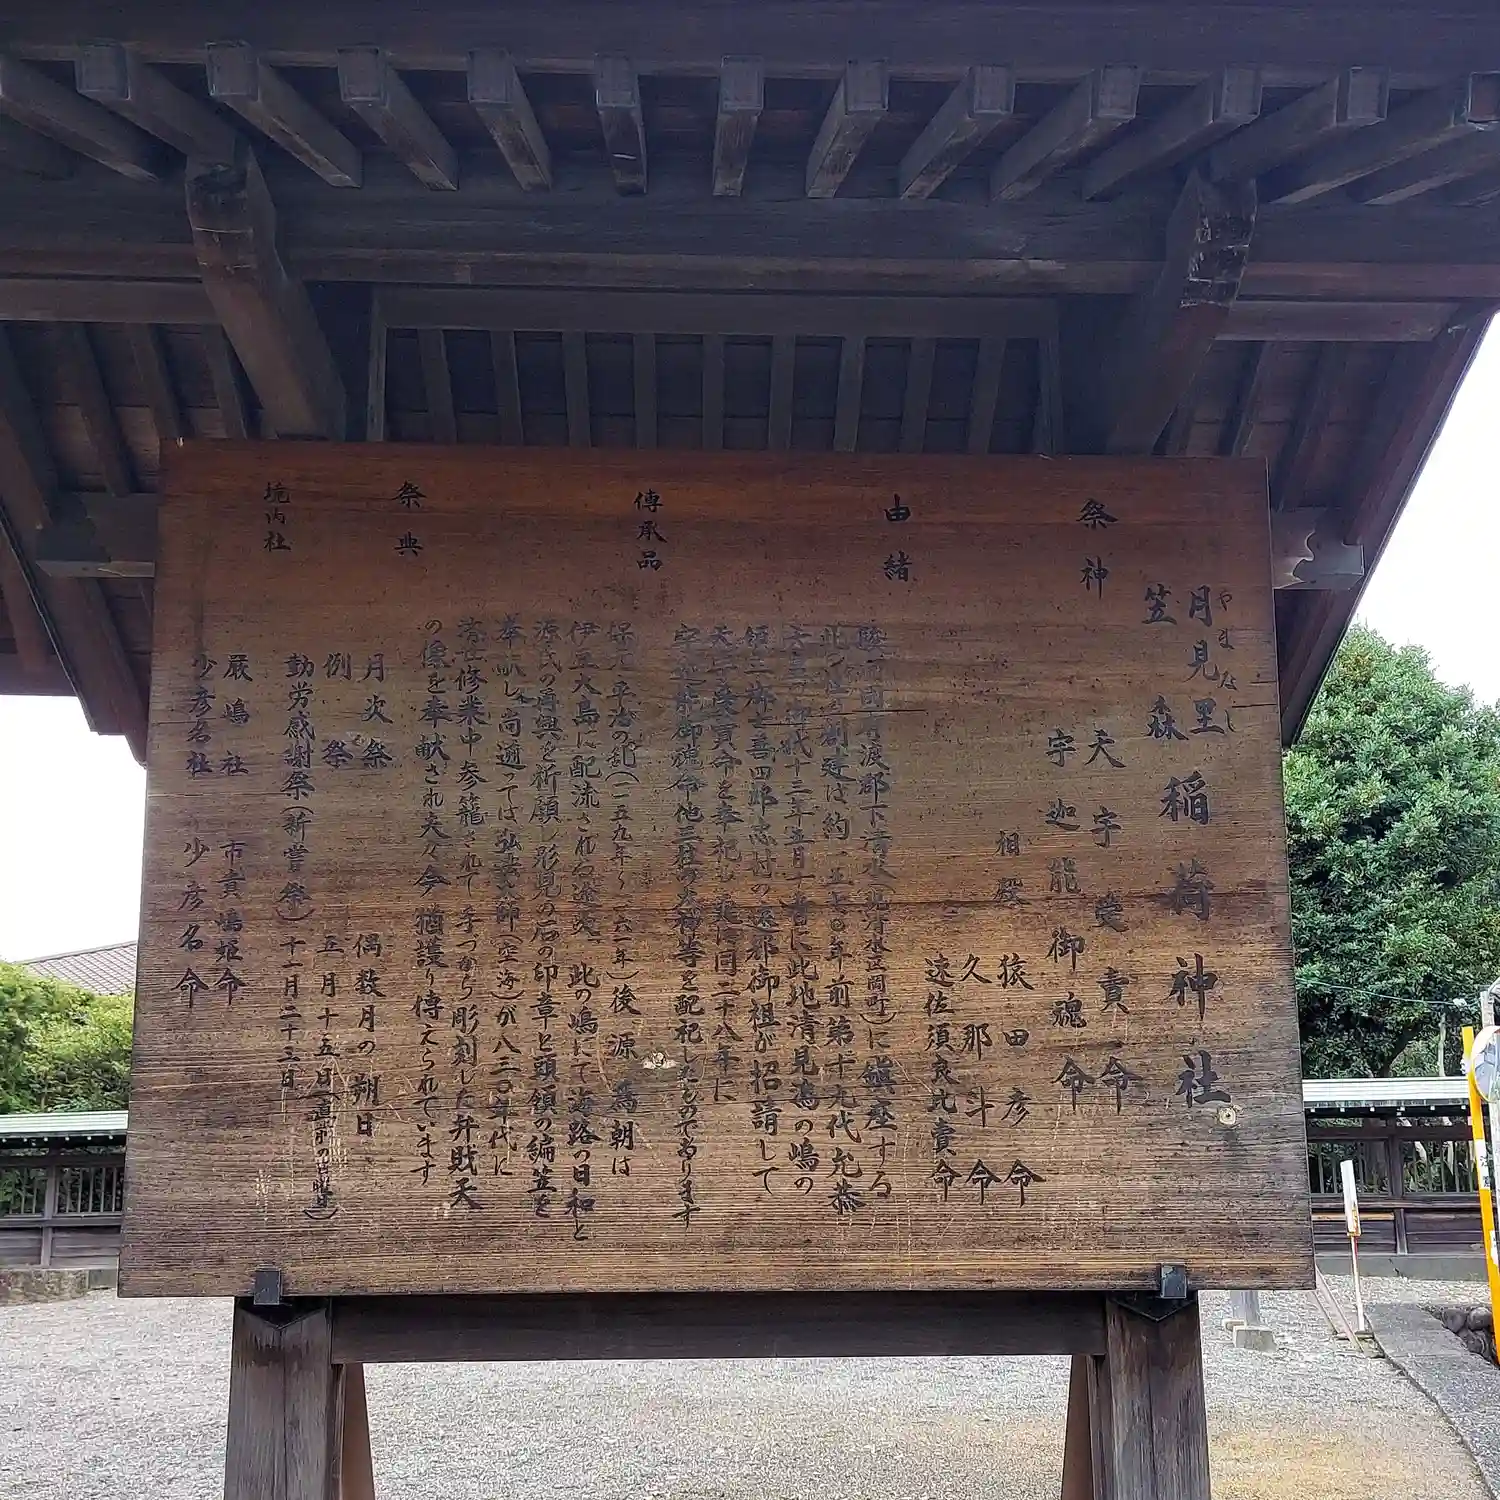 月見里
やまなし
笠森
稲荷神社
祭神
天宇受賣命
宇迦龍御魂命
相殿
猿田彦命
久那斗命
速佐須良比賣命
由緒
駿河国有渡郡下清水(現清水区岡町)に鎮座する
創建は約 年前第十九代允恭
御代十三年五月十 に此地清見潟の嶋の
善四郎志村の遠郡御祖が招請して
命を奉祀し 同二十八年に
御魂命他三 等を配祀したものであります
傳承品
保元平治の乱(一一五九年~一一六一年)後源為朝は
伊豆大島に配流される途次、此の嶋にて海路の日和と
源氏の再興を祈願し形見の石の印章と頭領の編笠を
奉献し、尚遡っては弘法大師(空海)が八二〇年代に
修業中参籠されて手づから彫刻した弁財天
の像を奉献され夫々今猶護り傳えられています
祭典
月次祭 偶数月の朔日
例祭 五月十五日(直前の日曜日)
勤労感謝祭(新嘗祭)十一月二十三日
境内社
厳嶋社 市寸嶋姫命
少彦名社 少彦名命